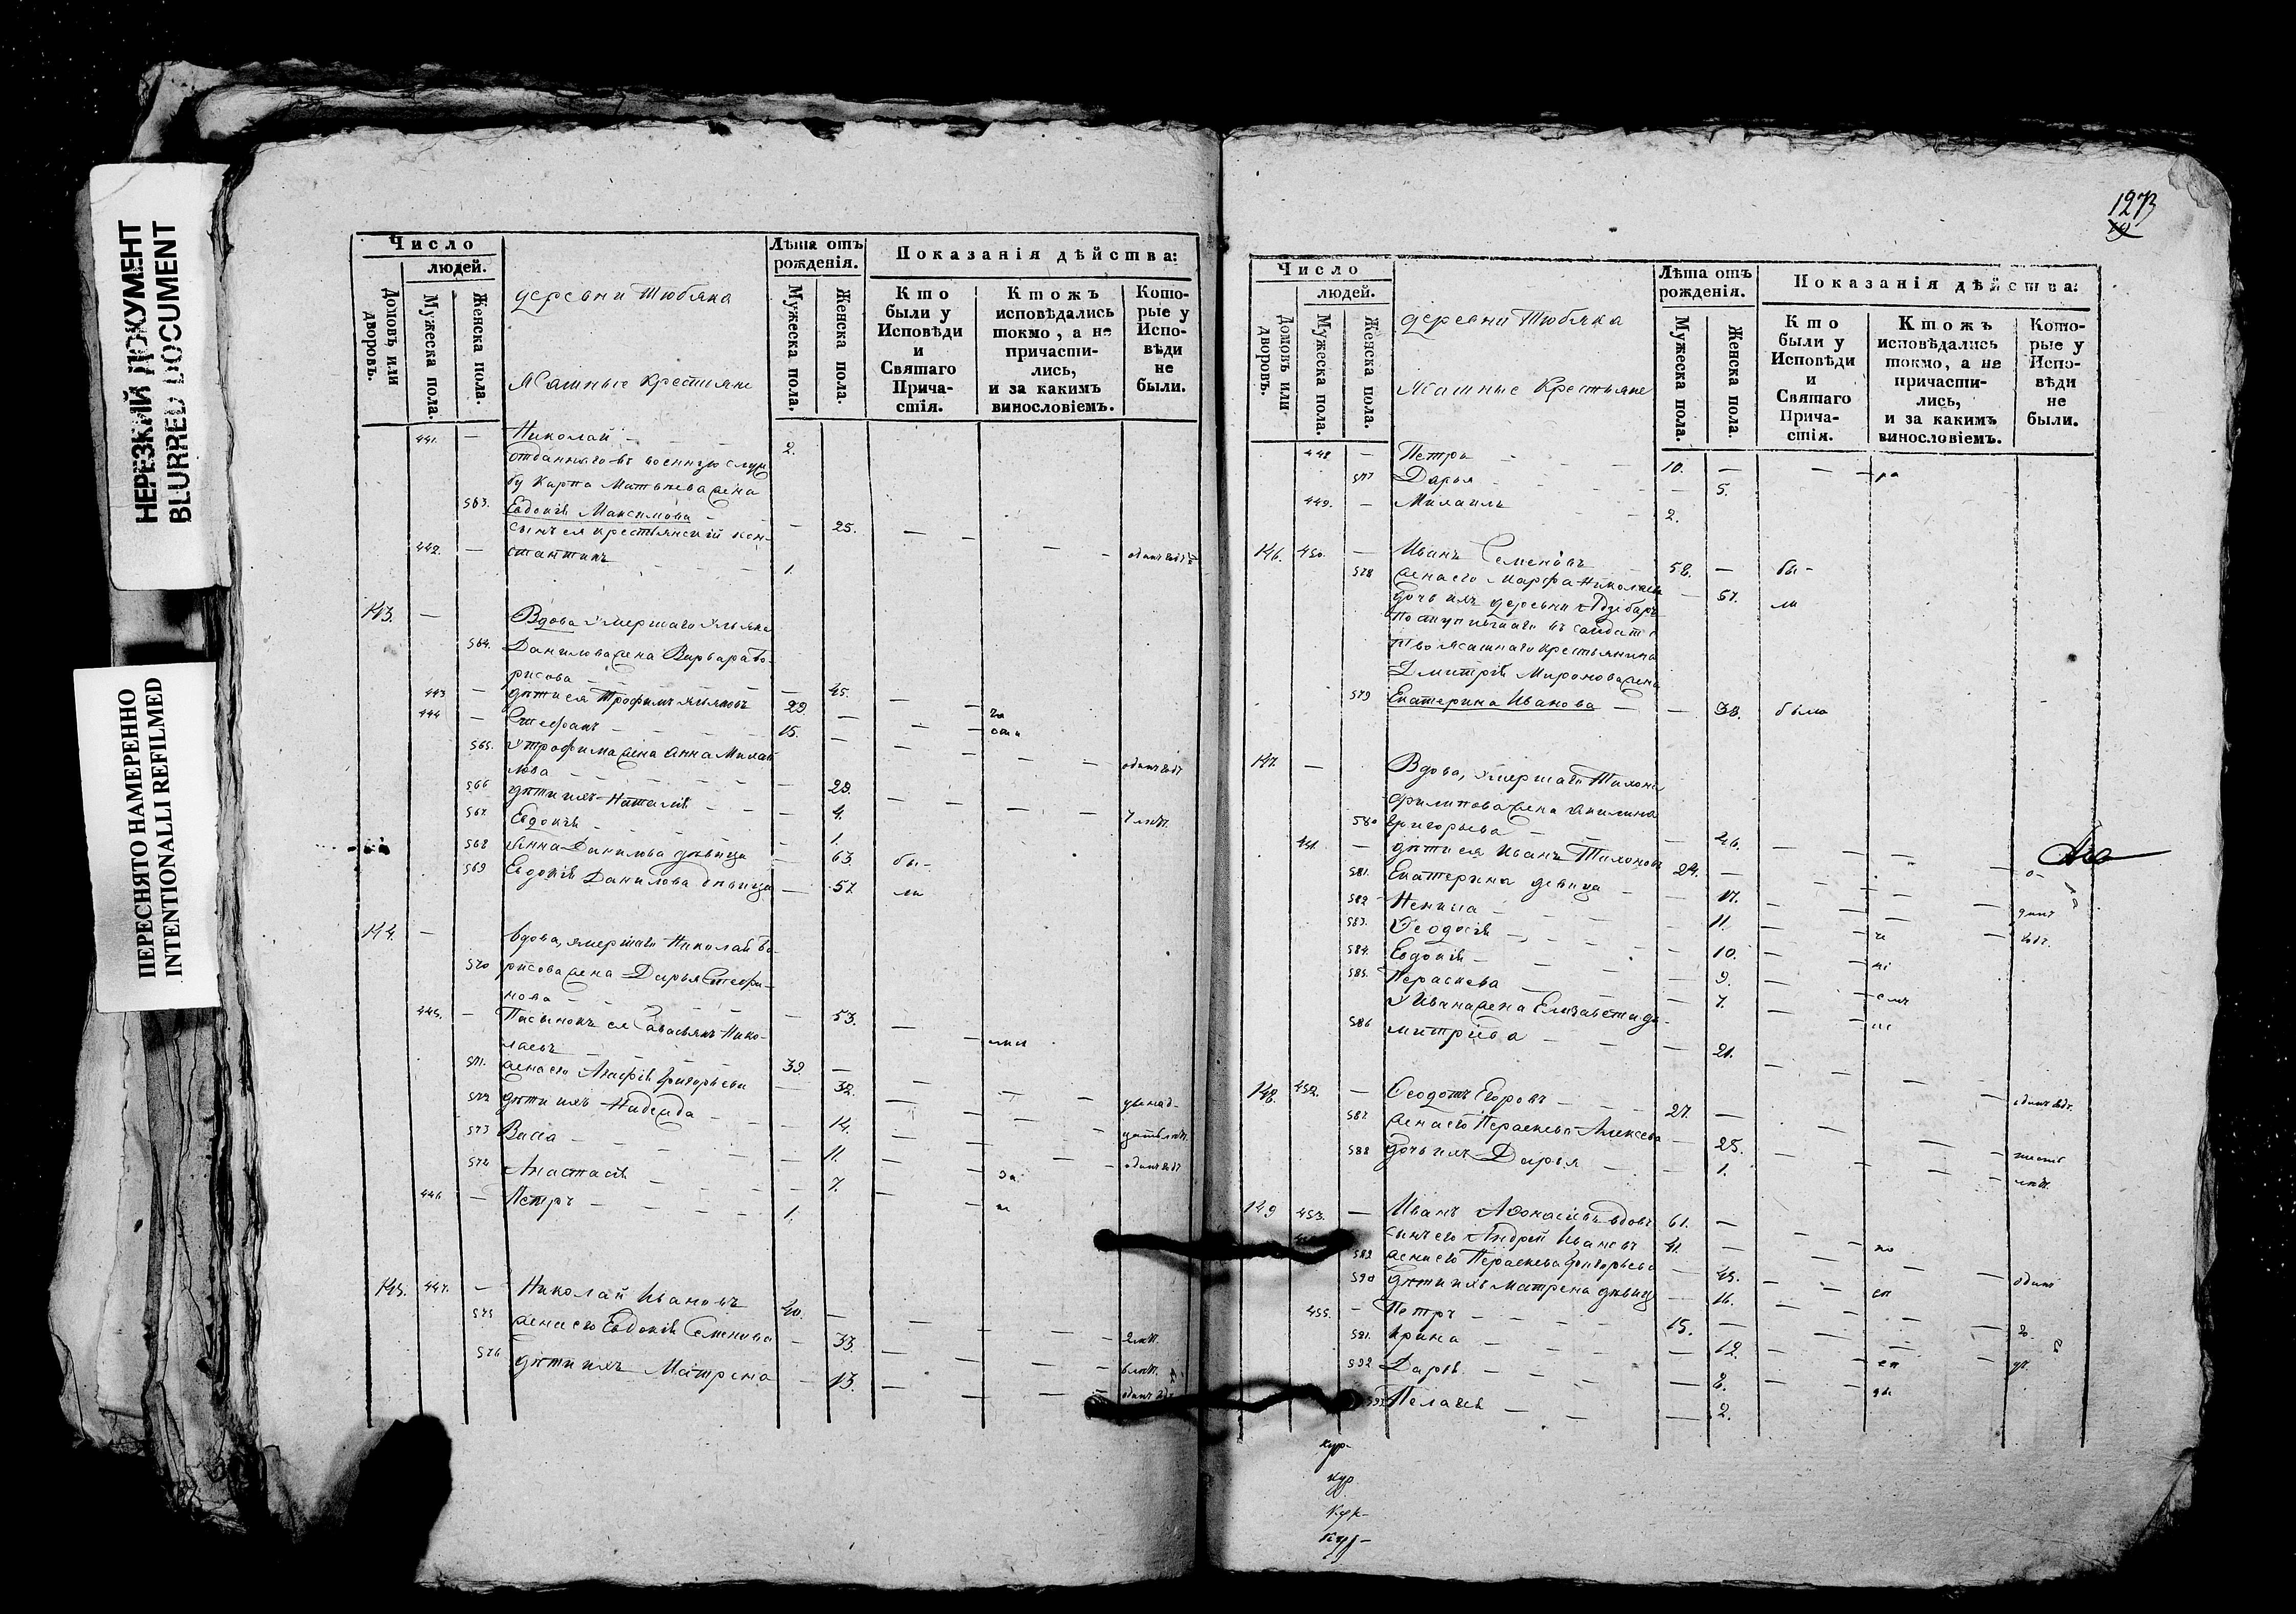 НЕРЕЗКИЙ ДОКУМЕНТ
BLURRED DOCUMENT
ПЕРЕСНЯТО НАМЕРЕННО
INTENTIONALLI REFILMED
Число
людей.
Домовъ или дворовъ.
Мужеска пола.
Женска пола.
деревни Тюбяка
Ясашные крестьяне
Лѣта отъ рожденія.
Мужеска пола.
Женска пола.
Показанія дѣйства:
Кто были у Исповѣди и Святаго Причастія.
Ктожъ исповѣдались токмо, а не причастились, и за какимъ винословіемъ.
Которые у Исповѣди не были.
441. — Николай 2.
отданнаго въ военную служ
бу Карпа Матвѣева жена
563. Евдокія Максимова — 25.
сынъ ея крестьянскій Кон-
442. — стантинъ 1.
143. — Вдова умершаго Ульяна
564. Данилова жена Варвара Бо-
рисова — 45.
443 — дѣти ея Трофимъ Ульяновъ 29. —
444 — Стефанъ 15. —
565. У трофима жена Анна Михай
лова — 29.
566 дѣти ихъ Наталія — 4.
567. Евдокія — 1.
568 Анна Данилова дѣвица — 63. бы-
569 Евдокія Данилова дѣвица — 57. ли
144. — Вдова, умершаго Николай Бо-
570 рисова жена Дарья Стефа-
нова — 53.
445. — Пасынокъ ея Савасьянъ Нико-
лаевъ 39. —
571. жена его Агафія Григорьева 32.
572 дѣти ихъ Надежда 14.
573 Васса 11.
574 Анастасія 7.
446. — Петръ 1.
145. 447. — Николай Ивановъ 40. —
575 жена его Евдокія Семенова — 33. 2 лѣт.
576 дѣти ихъ Матрена — 13. 6 лѣт.
1273
Число
людей.
Домовъ или дворовъ.
Мужеска пола.
Женска пола.
деревни Тюбяка
Ясашные Крестьяне
Лѣта отъ рожденія.
Мужеска пола.
Женска пола.
Показанія дѣйства:
Кто были у Исповѣди и Святаго Причастія.
Ктожъ исповѣдались токмо, а не причастились, и за какимъ винословіемъ.
Которые у Исповѣди не были.
448 — Петра 10. —
577 Дарья — 5.
449. — Михаилъ 2.
146. 450. — Иванъ Семеновъ 58. — бы-
578 жена его Марфа Николаева — 57. ли
дочь ихъ деревни
Поступившаго въ салдатс
тво ясашнаго крестьянина
Дмитрія Миронова жена
579 Екатерина Иванова — 38. была
147. — Вдова, умершаго Тихона
Филипова жена Акилина
580 Григорьева — 46.
451. — дѣти ея Иванъ Тихоновъ 24. —
581. Екатерина девица — 17.
582 Ненила — 11.
583. Ѳеодосія — 10.
584. Евдокія — 9.
585. Параскева — 7.
У Ивана жена Елизавета Д-
586 митріева — 21.
148. 452. — Ѳеодотъ Егоровъ 27. —
587. жена его Параскева Алексеева — 25.
588 дочь ихъ Дарья — 1.
149 453. — Иванъ Афонасіевъ вдовъ 61. —
сынъ его Андрей Ивановъ 41. —
589. жена его Параскева Григорьева — 45.
590 дѣти ихъ Матрена дѣвица — 16.
455. — Петръ 15. —
591. Ирина — 12.
592 Дарія — 8.
593 Пелагія — 2.